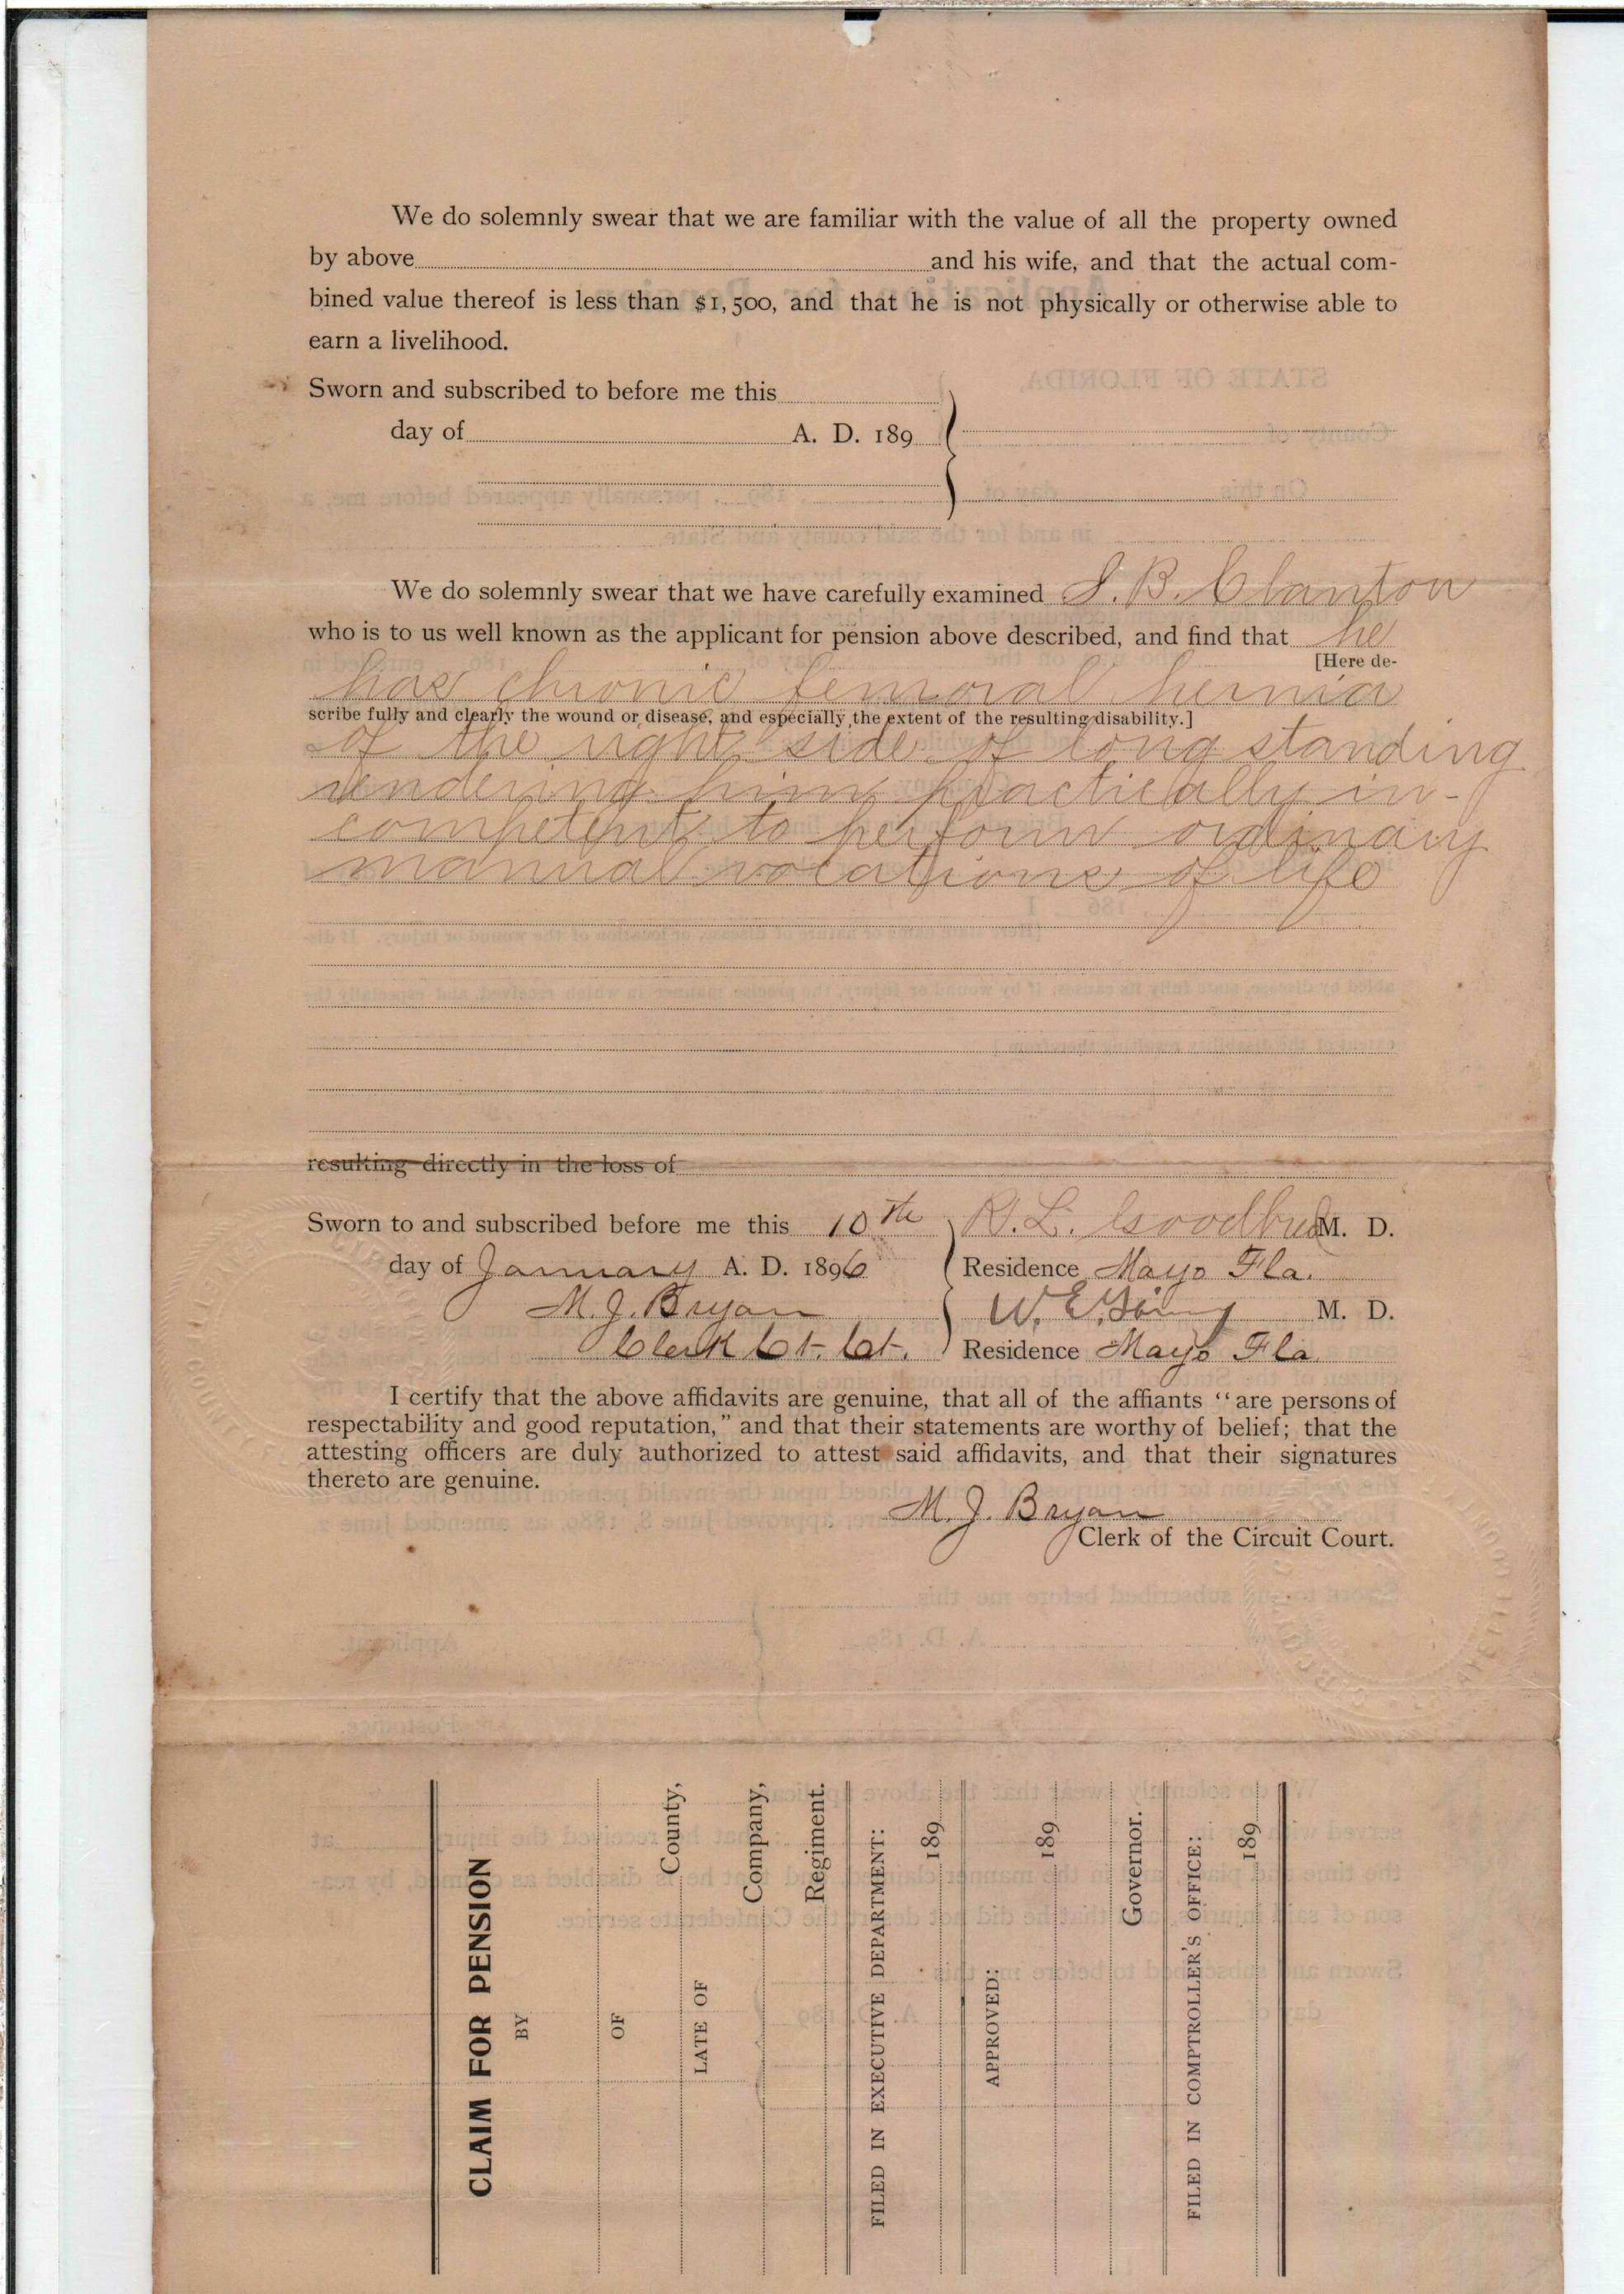 We do solemnly swear that we are familiar with the value of all the property owned
by above and his wife, and that the actual com-
bined value thereof is less than $1,500, and that he is not physically or otherwise able to
earn a livelihood.
Sworn and subscribed to before me this
day of A. D. 189
We do solemnly swear that we have carefully examined B. Clanton
who is to us well known as the applicant for pension above described, and find that he
[Here de-
has chronic femoral hernia
scribe fully and clearly the wound or disease, and especially the extent of the resulting disability.]
of the right side of long standing
rendering him practically in-
competent to perform ordinary
manual vocations of life
resulting directly in the loss of
Sworn to and subscribed before me this 10th L. M. D.
day of January A. D. 1896 Residence Mayo Fla.
M. J. Bryan W. E. M. D.
Clerk Ct. Ct. Residence Mayo Fla
I certify that the above affidavits are genuine, that all of the affiants "are persons of
respectability and good reputation," and that their statements are worthy of belief; that the
attesting officers are duly authorized to attest said affidavits, and that their signatures
thereto are genuine.
M. J. Bryan
Clerk of the Circuit Court.
CLAIM FOR PENSION
BY
OF
County,
LATE OF
Company,
Regiment.
FILED IN EXECUTIVE DEPARTMENT:
189
APPROVED:
189
Governor.
FILED IN COMPTROLLER'S OFFICE:
189